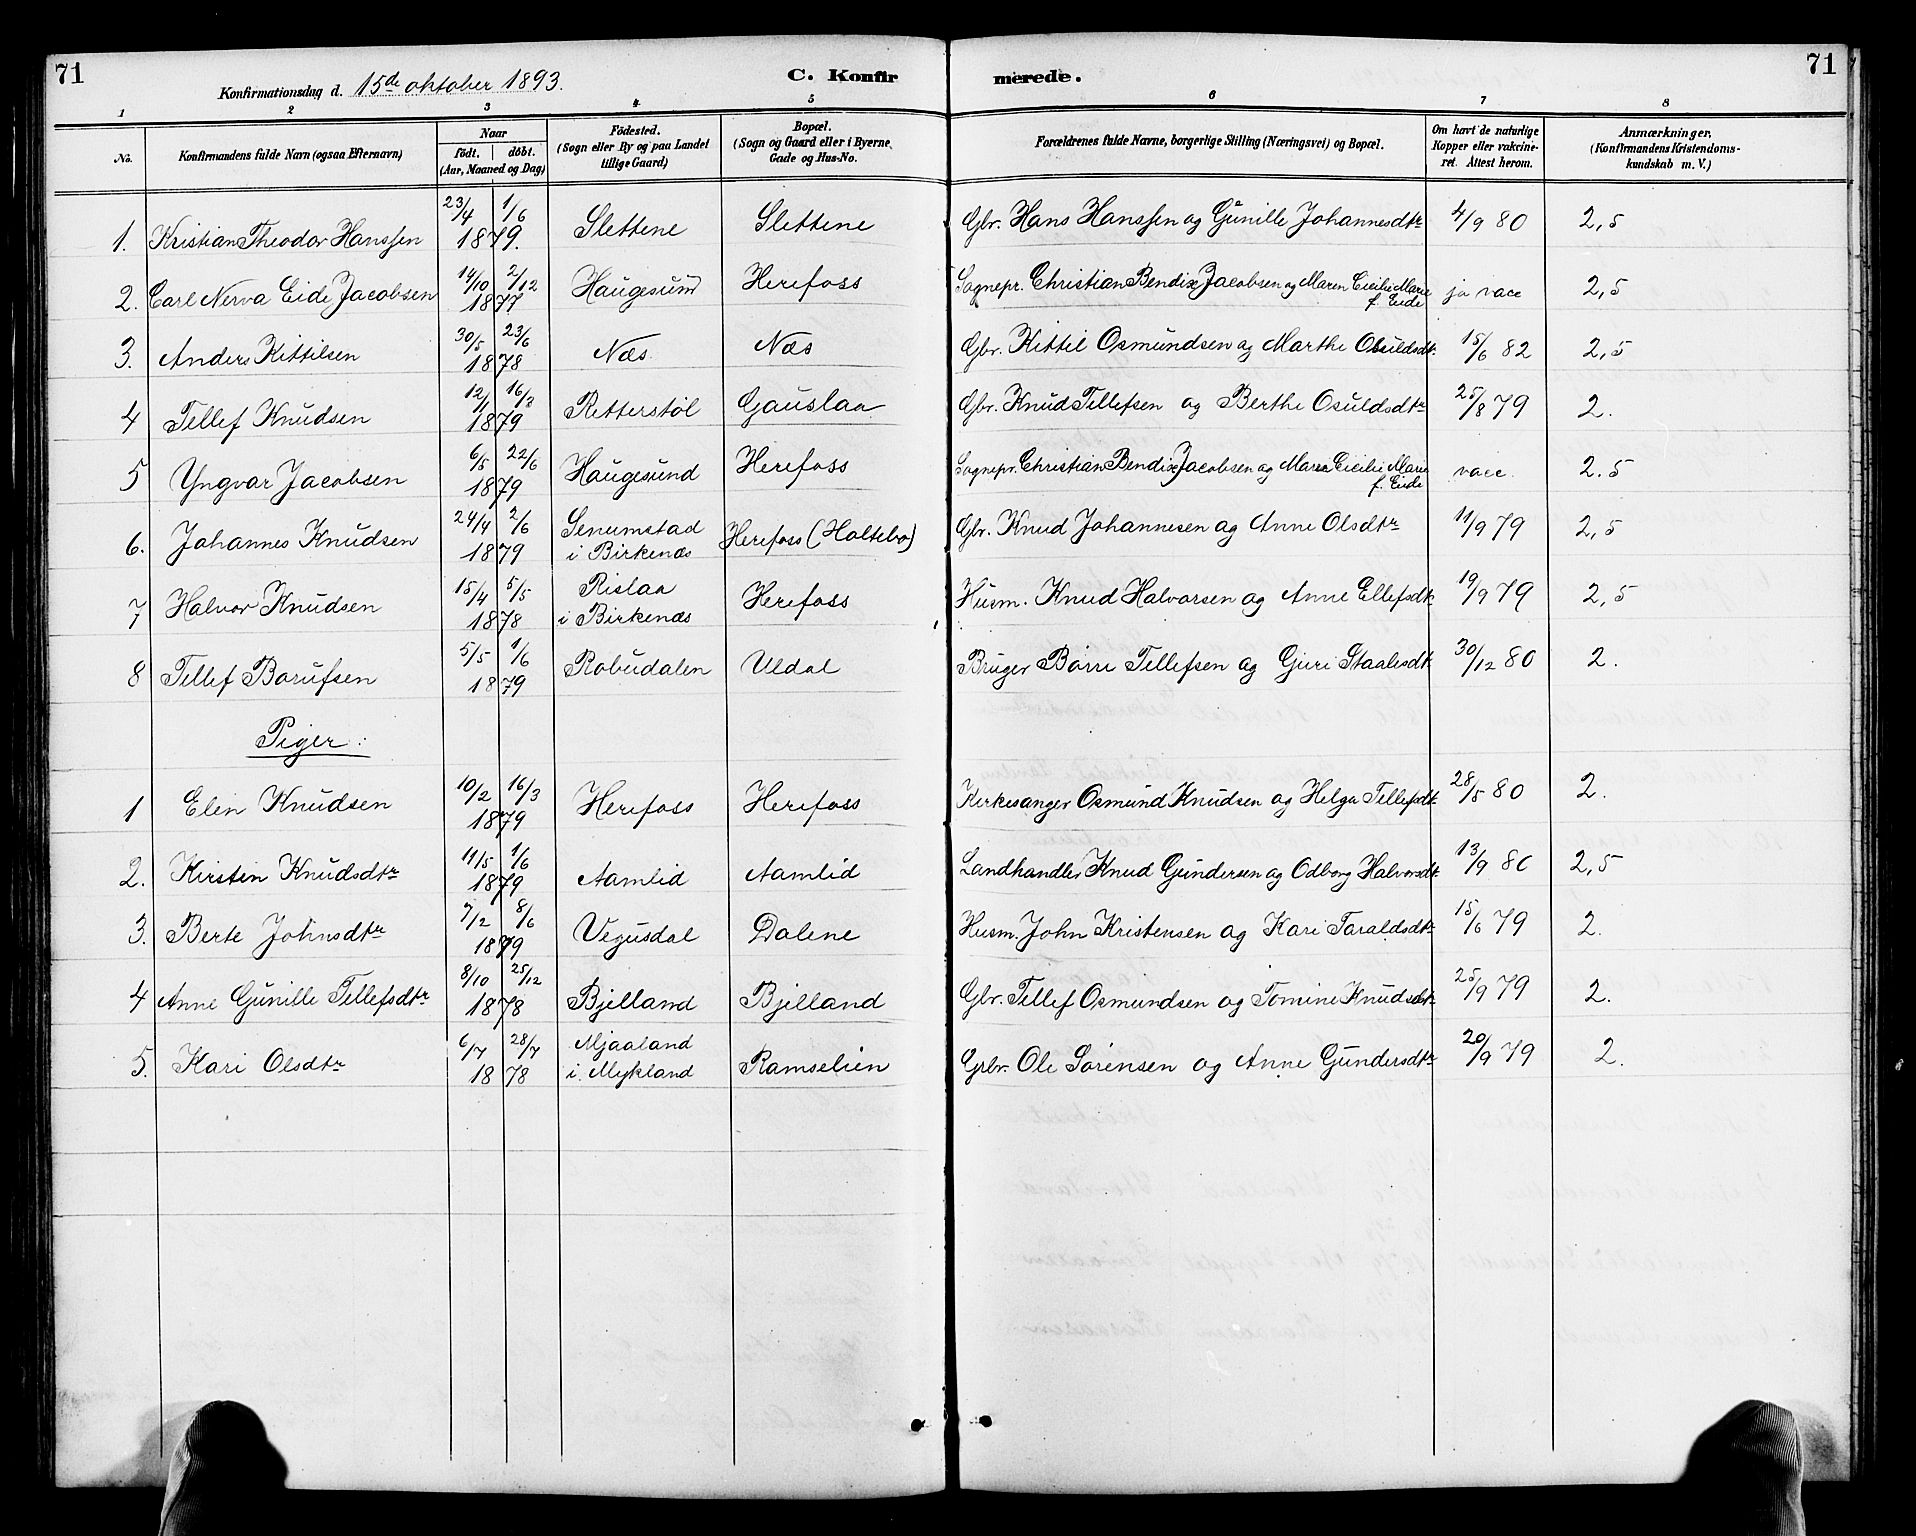 71
Konfirmationsdag d. 15de oktober 1893.
C. Konfirmerede.
71
1 2 3 4 5 6 7 8
No.
Konfirmandens fulde Navn (ogsaa Efternavn)
Naar
födt. | döbt.
(Aar, Maaned og Dag)
Födested.
(Sogn eller By og paa Landet
tillige Gaard)
Bopæl.
(Sogn og Gaard eller i Byerne
Gade og Hus-No.
Forældrenes fulde Navne, borgerlige Stilling (Næringsvei) og Bopæl.
Om havt de naturlige
Kopper eller vakcine-
ret. Attest herom.
Anmærkninger.
(Konfirmandens Kristendoms-
kundskab m. V.)
1. Kristian Theodor Hanssen 23/4 1/6 1879. Slettene Slettene Gbr. Hans Hanssen og Gunille Johannesdtr 4/9 80 2,5
2. Carl Nerva Eide Jacobsen 14/10 2/12 1877 Haugesund Herefoss Sognepr. Christian Bendix Jacobsen og Maren Cicilie Marie f. Eide ja vacc 2,5
3. Anders Kittilsen 30/5 23/6 1878 Næs. Næs Gbr. Kittil Osmundsen og Marthe Osuldsdtr. 15/6 82 2,5
4 Tellef Knudsen 12/1 16/3 1879 Retterstøl Gauslaa Gbr. Knud Tellefsen og Berthe Osuldsdtr 25/8 79 2.
5 Yngvar Jacobsen 6/5 22/6 1879 Haugesund Herefoss Sognepr. Christian Bendix Jacobsen og Maren Cicilie Marie f. Eide vacc. 2.5
6. Johannes Knudsen 24/4 2/6 1879 Senumstad i Birkenæs Herefoss (Holtebo) Gbr. Knud Johannesen og Anne Olsdtr 11/9 79 2,5
7 Halvor Knudsen 15/4 5/5 1878 Rislaa i Birkenæs Herefoss Husm. Knud Halvorsen og Anne Ellefsdtr 19/9 79 2,5
8 Tellef Børufsen 5/5 1/6 1879 Robudalen Uldal Bruger Børre Tellefsen og Guri Staalesdtr 30/12 80 2.
Piger:
1 Elen Knudsen 10/2 16/3 1879 Herefoss Herefoss Kirkesanger Osmund Knudsen og Helga Tellefsdtr. 28/5 80 2.
2. Kirsten Knudsdtr 11/5 1/6 1879 Aamlid Aamlid Landhandler Knud Gundersen og Odborg Halvorsdtr. 13/9 80 2,5
3. Berte Johnsdtr 7/2 8/6 1879 Vegusdal Dalene Husm. John Kristensen og Kari Taraldsdtr 15/6 79 2.
4 Anne Gunille Tellefsdtr 8/10 25/12 1878 Bjelland Bjelland Gbr. Tellef Osmundsen og Tomine Knudsdtr 25/9 79 2.
5. Kari Olsdtr 6/7 28/7 1878 Mjaaland i. Mykland Ramselien Grbr. Ole Sørensen og Anne Gundersdtr 20/9 79 2.